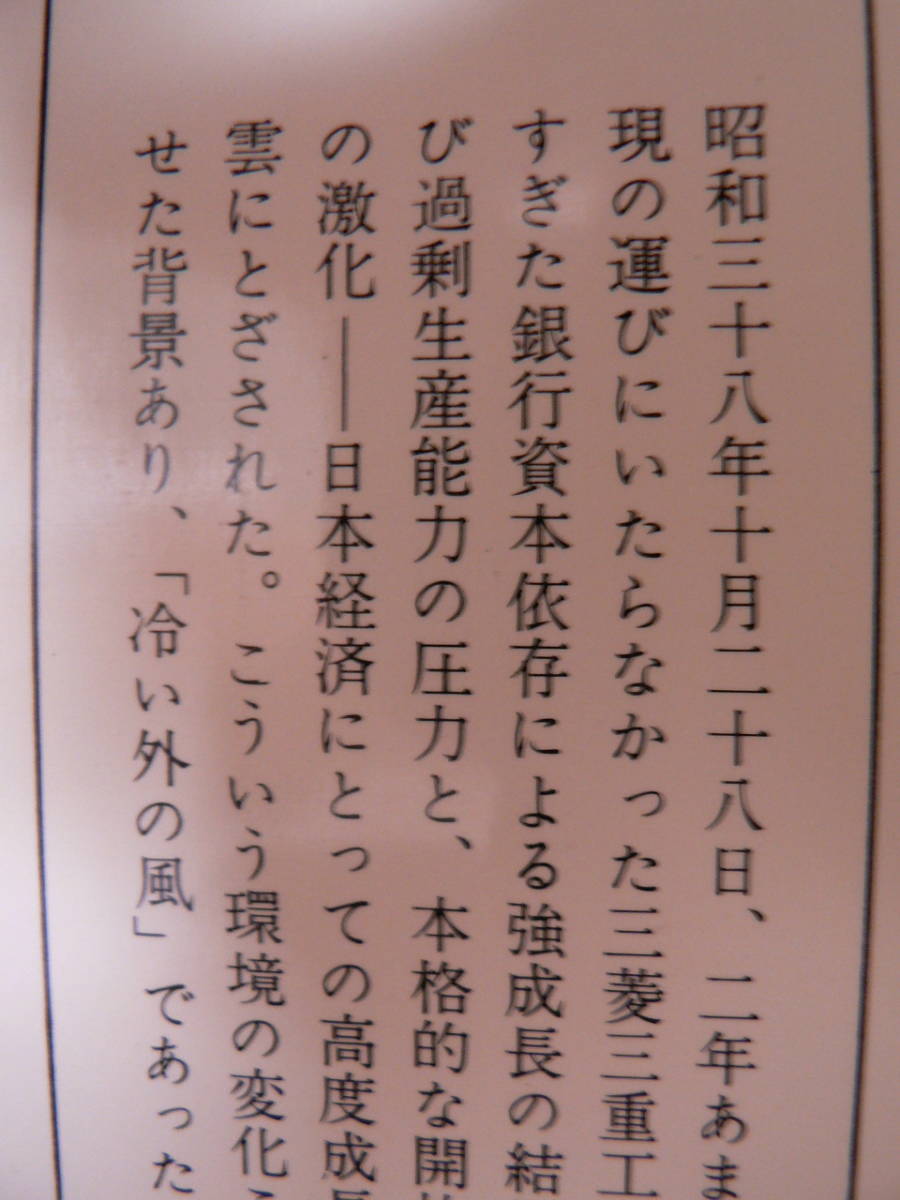 昭和三十八年十月二十八日、二年あま
現の運びにいたらなかった三菱三重工
すぎた銀行資本依存による強成長の結
び過剰生産能力の圧力と、本格的な開
の激化——日本経済にとっての高度成長
雲にとざされた。こういう環境の変化
せた背景あり、「冷い外の風」であった